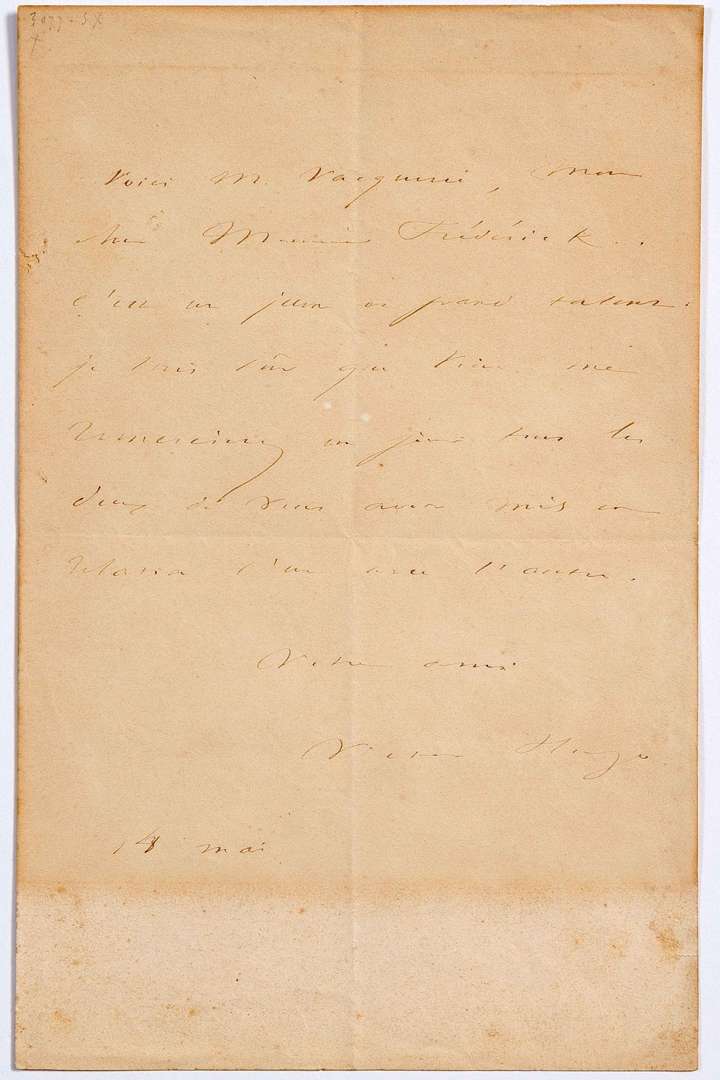 Voici M. Vacquerie, mon
cher Monsieur Frédérick..
c'est un jeune et grand talent.
je suis sûr que vous me
remercierez un jour tous les
deux de vous avoir mis en
relation l'un avec l'autre.
Votre ami
Victor Hugo
14 mai